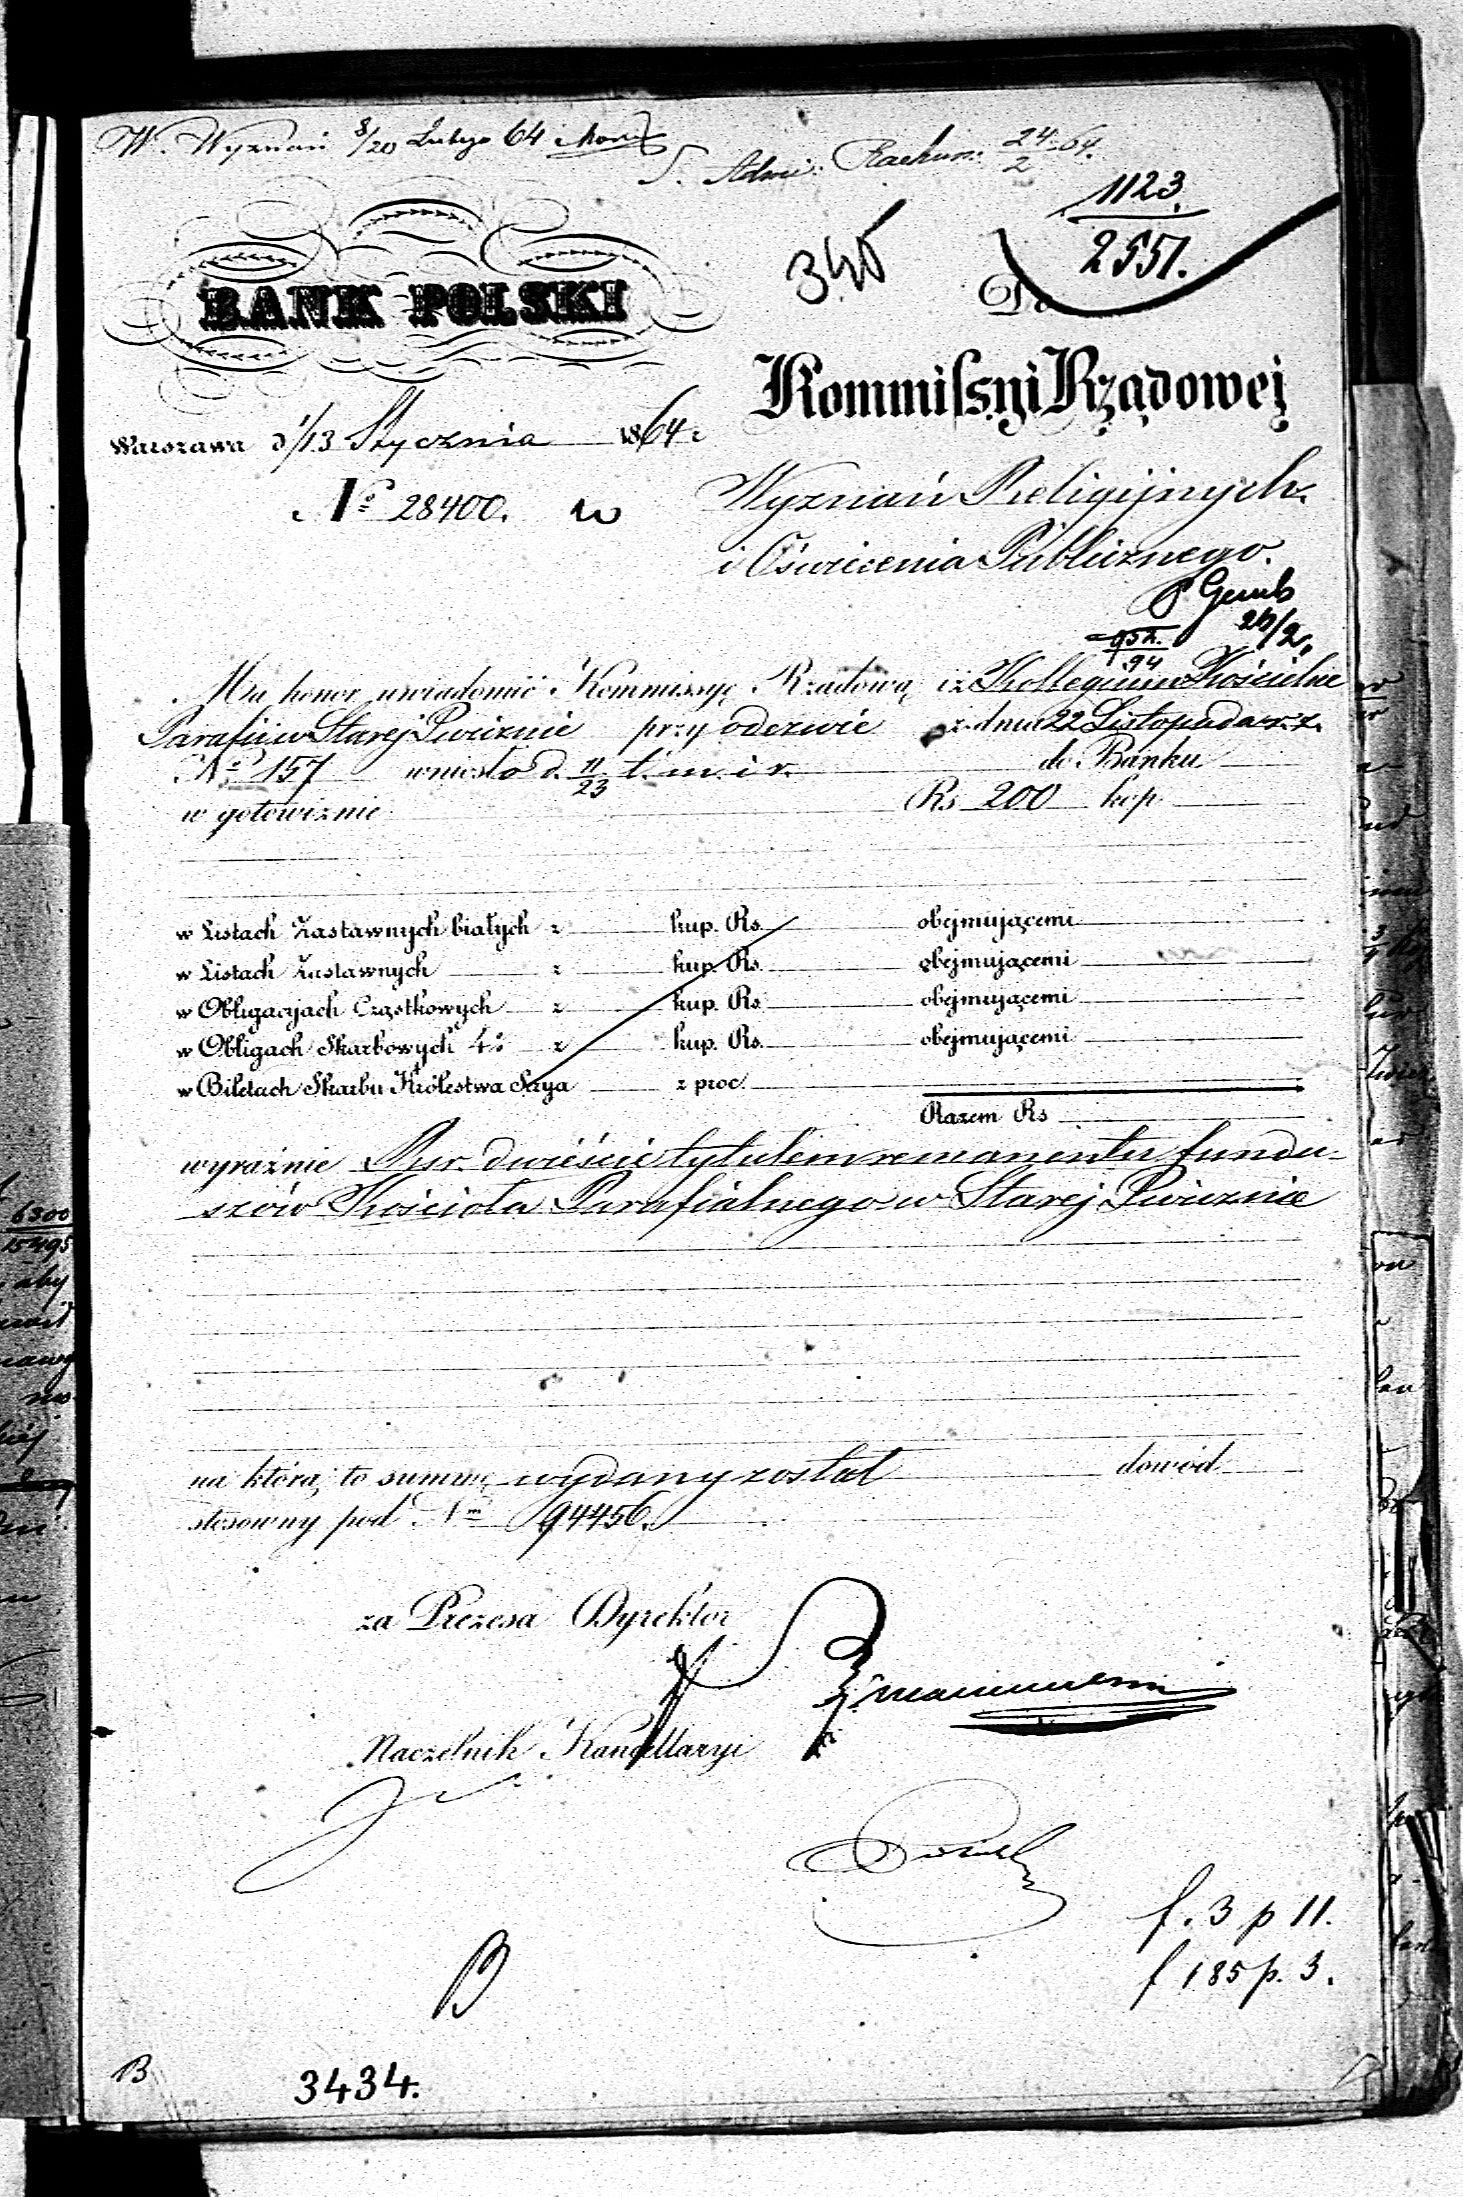 W. Wyznań 8/20 Lutego 64
Rachun: 24/2 64.
1123.
2551.
345
BANK POLSKI
Do
Kommissyi Rządowej
Warszawa d 1/13 Stycznia 1864 r
№ 28400.
Wyznań Religijnych
i Oświecenia Publicznego.
26/2
94
Ma honor uwiadomić Kommissyę Rządową iż Kollegium Kościelne
Parafii w Starej Iwicznie przy odezwie z dnia 22 Listopada r. z.
№ 157 wniosło d. 11/23 t. m. i r. do Banku
w gotowiznie Rs 200 kop.
w Listach Zastawnych białych z kup. Rs. obejmującemi
w Listach Zastawnych z kup. Rs. obejmującemi
w Obligacyjach Cząstkowych z kup. Rs. obejmującemi
w Obligach Skarbowych 4% z kup. Rs. obejmującemi
w Biletach Skarbu Królestwa Serya z proc.
Razem Rs
wyraźnie Rsr. dwieście tytułem remanentu fundu-
szów Kościoła Parafialnego w Starej Iwicznie
na którą to summę wydany został dowód
stosowny pod Nm 94456.
za Prezesa Dyrektor
Naczelnik Kancellaryi
f. 3 p 11.
f 185 p. 3.
B
B
3434.
6300
15495
aby